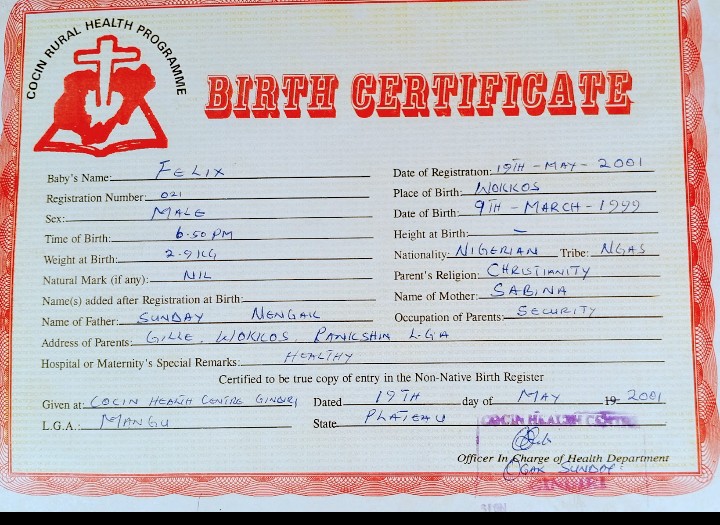 COCIN RURAL HEALTH PROGRAMME
BIRTH CERTIFICATE
Baby's Name: FELIX
Date of Registration: 19TH - MAY - 2001
Registration Number: 021
Place of Birth: WOKKOS
Sex: MALE
Date of Birth: 9TH - MARCH - 1999
Time of Birth: 6-50 PM
Height at Birth: –
Weight at Birth: 2-9 KG
Nationality: NIGERIAN Tribe: NGAS
Natural Mark (if any): NIL
Parent's Religion: CHRISTIANITY
Name(s) added after Registration at Birth:
Name of Mother: SABINA
Name of Father: SUNDAY NENGAK
Occupation of Parents: SECURITY
Address of Parents: GILLE, WOKKOS, PANKSHIN L-GA
Hospital or Maternity's Special Remarks: HEALTHY
Certified to be true copy of entry in the Non-Native Birth Register
Given at: COCIN HEALTH CENTRE GINDIRI Dated 19TH day of MAY 19 2001
L.G.A.: MANGU State PLATEAU
COCIN HEALTH CENTRE
Officer In Charge of Health Department
SUNDAY
GINDIRI